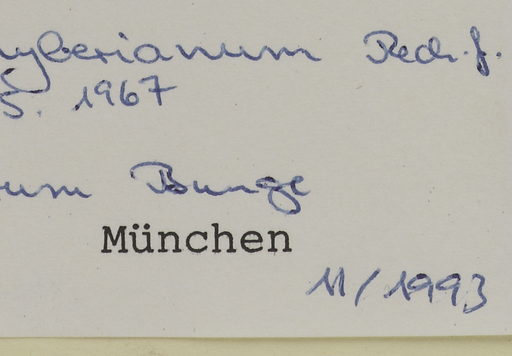 yberianum Rech. f.
5. 1967
um Bunge
München
11/1993